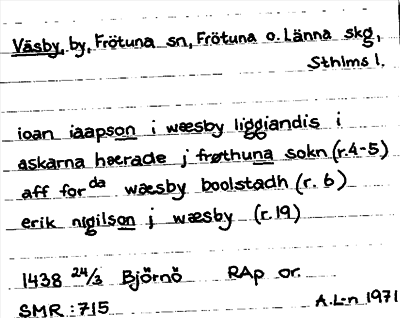 Väsby, by, Frötuna sn, Frötuna o. Länna skg,
Sthlms l.
ioan iaapson i wæsby liggiandis i
askarna hærade j frøthuna sokn (r.4-5)
aff for da wæsby boolstadh (r. 6)
erik nigilson j wæsby (r.19)
1438 24/3 Björnö RAp or.
SMR:715 A.L-n 1971